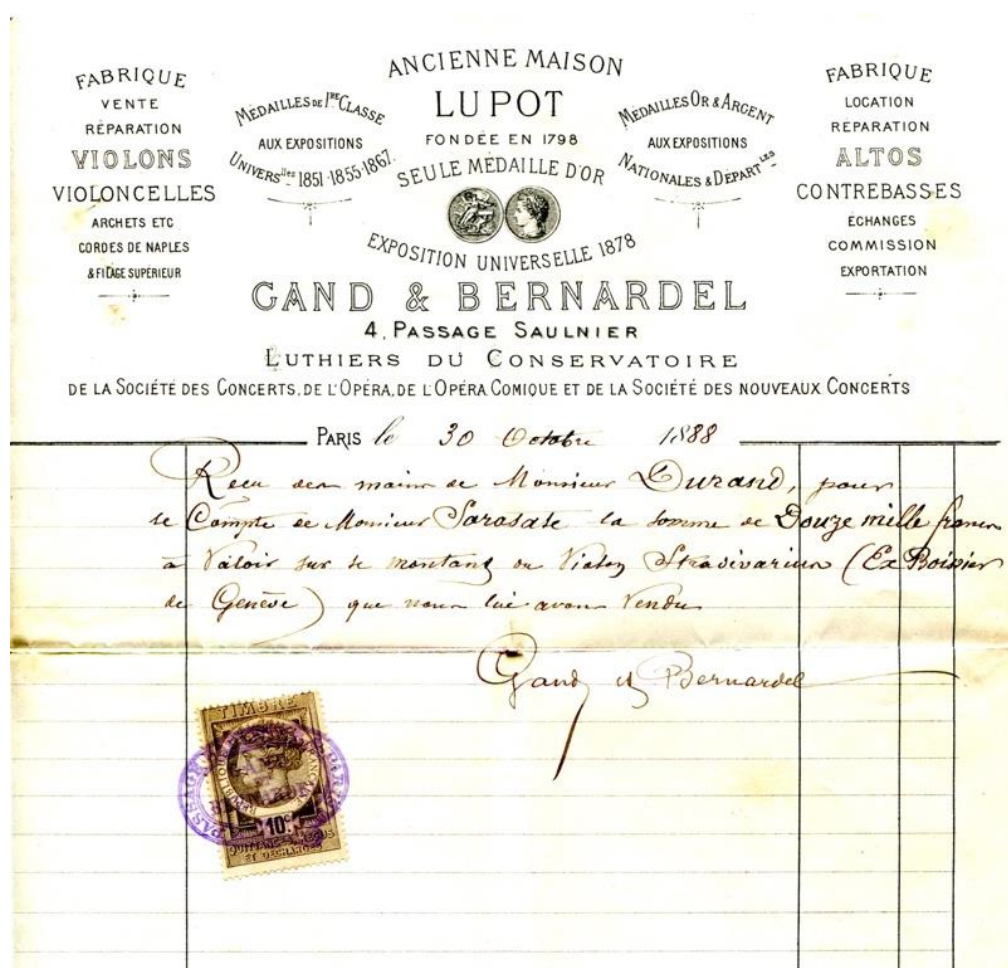 FABRIQUE
VENTE
RÉPARATION
VIOLONS
VIOLONCELLES
ARCHETS ETC
CORDES DE NAPLES
& FILAGE SUPÉRIEUR
MÉDAILLES DE 1RE CLASSE
AUX EXPOSITIONS
UNIVERSlles 1851·1855·1867.
ANCIENNE MAISON
LUPOT
FONDÉE EN 1798
SEULE MÉDAILLE D'OR
EXPOSITION UNIVERSELLE 1878
MÉDAILLES OR & ARGENT
AUX EXPOSITIONS
NATIONALES & DÉPARTLES
FABRIQUE
LOCATION
RÉPARATION
ALTOS
CONTREBASSES
ÉCHANGES
COMMISSION
EXPORTATION
GAND & BERNARDEL
4, PASSAGE SAULNIER
LUTHIERS DU CONSERVATOIRE
DE LA SOCIÉTÉ DES CONCERTS, DE L'OPÉRA, DE L'OPÉRA COMIQUE ET DE LA SOCIÉTÉ DES NOUVEAUX CONCERTS
PARIS le 30 Octobre 1888
Reçu des mains de Monsieur Durand, pour
le Compte de Monsieur Sarasate la somme de Douze mille francs
à Valoir sur le montant du Violon Stradivarius (Ex Boissier
de Genève) que nous lui avons Vendu
Gand et Bernardel
TIMBRE
RÉPUBLIQUE FRANÇAISE
10c
QUITTANCES REÇUS
ET DÉCHARGES